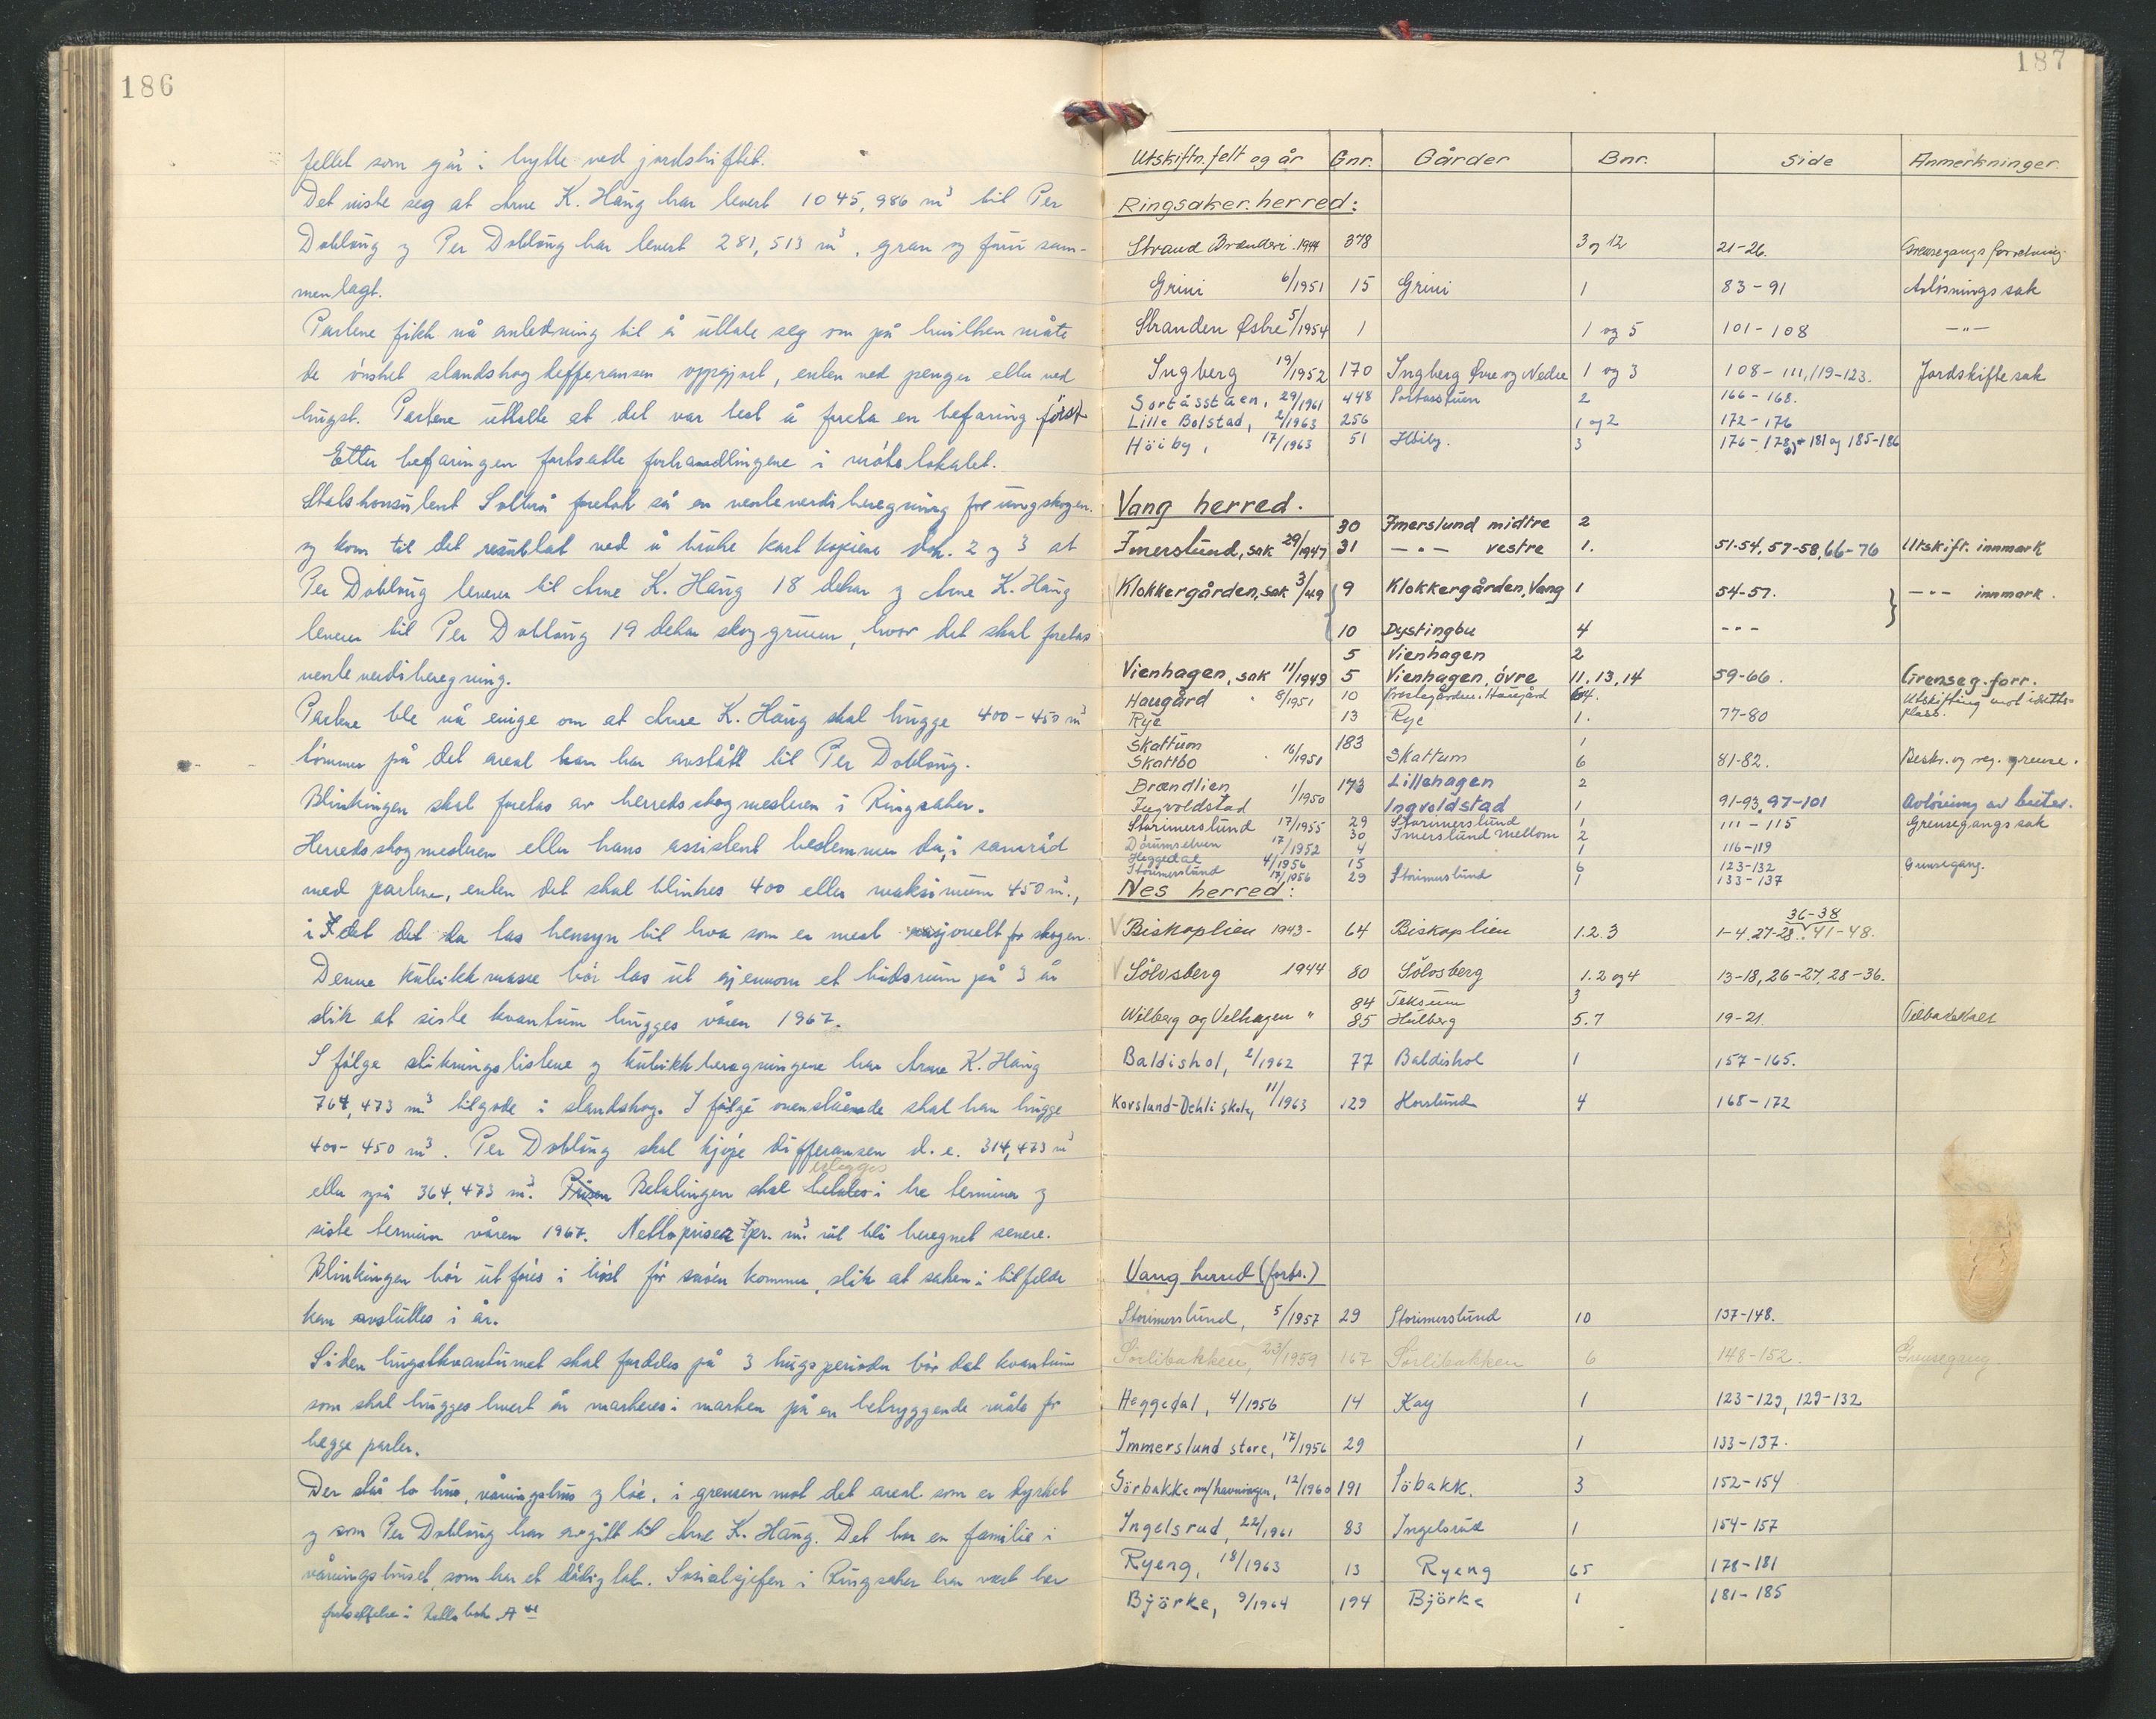 186
feltet som går i bytte ved jordskiftet.
Det viste seg at Arne K. Haug har levert 1045,986 m³ til Per
Dobloug og Per Dobloug har levert 281,513 m³, gran og furu sam-
menlagt.
Partene fikk nå anledning til å uttale seg om på hvilken måte
de ønsket standskogdefferansen oppgjort, enten ved penger eller ved
hugst. Partene uttalte at det var best å foreta en befaring först
Etter befaringen fortsatte forhandlingene i møtelokalet.
Statskonsulent foretok så en venteverdiberegning for ungskogen.
og kom til det resultat ved å bruke kartkopiene dok. 2 og 3 at
Per Dobloug leverer til Arne K. Haug 18 dekar og Arne K. Haug
leverer til Per Dobloug 19 dekar skoggrunn, hvor det skal foretas
venteverdiberegning.
Partene ble nå enige om at Arne K. Haug skal hugge 400-450 m³
tømmer på det areal han har avstått til Per Dobloug.
Blinkingen skal foretas av herredsskogmesteren i Ringsaker.
Herredsskogmesteren eller hans assistent bestemmer da, i samråd
med partene, enten det skal blinkes 400 eller maksimum 450 m³.,
i det det da tas hensyn til hva som er mest rasjonelt for skogen.
Denne kubikkmasse bør tas ut gjennom et tidsrum på 3 år
slik at siste kvantum hugges våren 1967.
I følge stikningslistene og kubikkberegningene har Arne K. Haug
764,473 m³ tilgode i standskog. I følge ovenstående skal han hugge
400-450 m³. Per Dobloug skal kjøpe differansen d.e. 314,473 m³
erlegges
eller også 364,473 m³. Prisen Betalingen skal betales i tre terminer og
siste termin våren 1967. Nettoprisen pr. m³. vil bli beregnet senere.
Blinkingen bør utføres i høst før snøen kommer, slik at saken i tilfelde
kan avsluttes i år.
Siden hugstkvantumet skal fordeles på 3 hugsperioder bør det kvantum
som skal hugges hvert år markeres i marken på en betryggende måte for
begge parter.
Der står to hus, våningshus og løe, i grensen mot det areal som er dyrket
og som Per Dobloug har avgitt til Arne K. Haug. Det bor en familie i
våningshuset, som har et dårlig tak. Sosialsjefen i Ringsaker har vært her
fortsettelse i Rettsbok A
187
Utskiftn. felt og år Gnr. Gårder Bnr. Side Anmerkninger.
Ringsaker. herred:
Strand Brænderi. 1944 378 3 og 12 21-26. Grensegangsforretning
Grini 6/1951 15 Grini 1 83-91 Avløsningssak
Stranden Østre 5/1954 1 1 og 5 101-108 -"-
Ingberg 19/1952 170 Ingberg Øvre og Nedre 1 og 3 108-111, 119-123. Jordskiftesak
Sortåsstuen, 29/1961 448 Sortåsstuen 2 166-168.
Lille Bolstad, 2/1963 256 1 og 2 172-176
Höiby, 17/1963 51 Höiby. 3 176-178, 181 og 185-186
Vang herred.
30 Imerslund midtre 2
Imerslund, sak 29/1947 31 -"- vestre 1. 51-54, 57-58, 66-76 Utskift. innmark
Klokkergården, sak 3/49 9 Klokkergården, Vang 1 54-57. -"- innmark.
10 Dystingbu 4 -"-
5 Vienhagen 2
Vienhagen, sak 11/1949 5 Vienhagen, övre 11, 13, 14 59-66. Grenseg. forr.
Haugård " 8/1951 10 Prestegården. Haugård 64. Utskifting mot idretts-
Rye 13 Rye 1. 77-80 plass.
Skattum 183 1
Skattbo 16/1951 Skattum 6 81-82. Beskr. og reg. grense.
Brændlien 1/1950 173 Lillehagen 2
Ingvoldstad Ingvoldstad 1 91-93, 97-101 Avlösning av beiter.
Storimerslund 17/1955 29 Storimerslund 1 111-115 Grensegangssak
30 Imerslund mellom 2
17/1952 4 1 116-119
Heggedal 4/1956 15 6 123-132 Grensegang.
Storimerslund 17/1956 29 Storimerslund 1 133-137
Nes herred:
36-38
Biskoplien 1943- 64 Biskoplien 1.2.3 1-4, 27-28, 41-48.
Sölvsberg 1944 80 Sölvsberg 1.2 og 4 13-18, 26-27, 28-36.
84 Teksum 3
Wilberg og Velhagen " 85 Hulberg 5.7 19-21. Tilbakekalt
Baldishol, 2/1962 77 Baldishol 1 157-165.
Korslund-Dehli skole, 11/1963 129 Korslund 4 168-172
Vang herred (forts.)
Storimerslund, 5/1957 29 Storimerslund 10 137-148.
Sörlibakken, 23/1959 167 Sörlibakken 6 148-152. Grensegang.
Heggedal, 4/1956 14 Kay 1 123-129, 129-132
Immerslund store, 17/1956 29 1 133-137.
Sörbakke m/havningen, 12/1960 191 Söbakk. 3 152-154
Ingelsrud, 22/1961 83 Ingelsrud 1 154-157
Ryeng, 18/1963 13 Ryeng 65 178-181
Björke, 9/1964 194 Björke 1 181-185